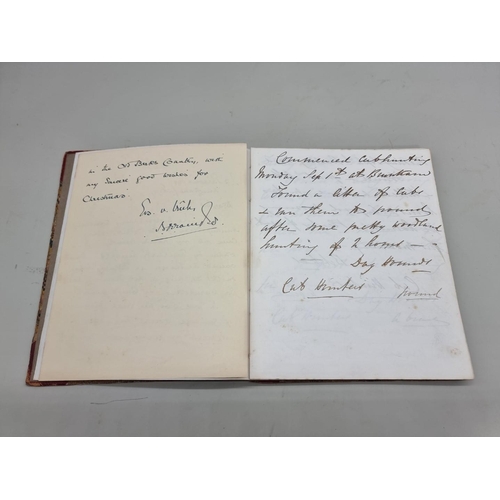 in the Old Berks Country, with
my sincere good wishes for
Christmas.
Commenced cubhunting
Monday Sep 1st at Buckland
Found a litter of cubs
& ran them to ground
after some pretty woodland
hunting of 2 hours —
Dog Hounds
Cub Hunters